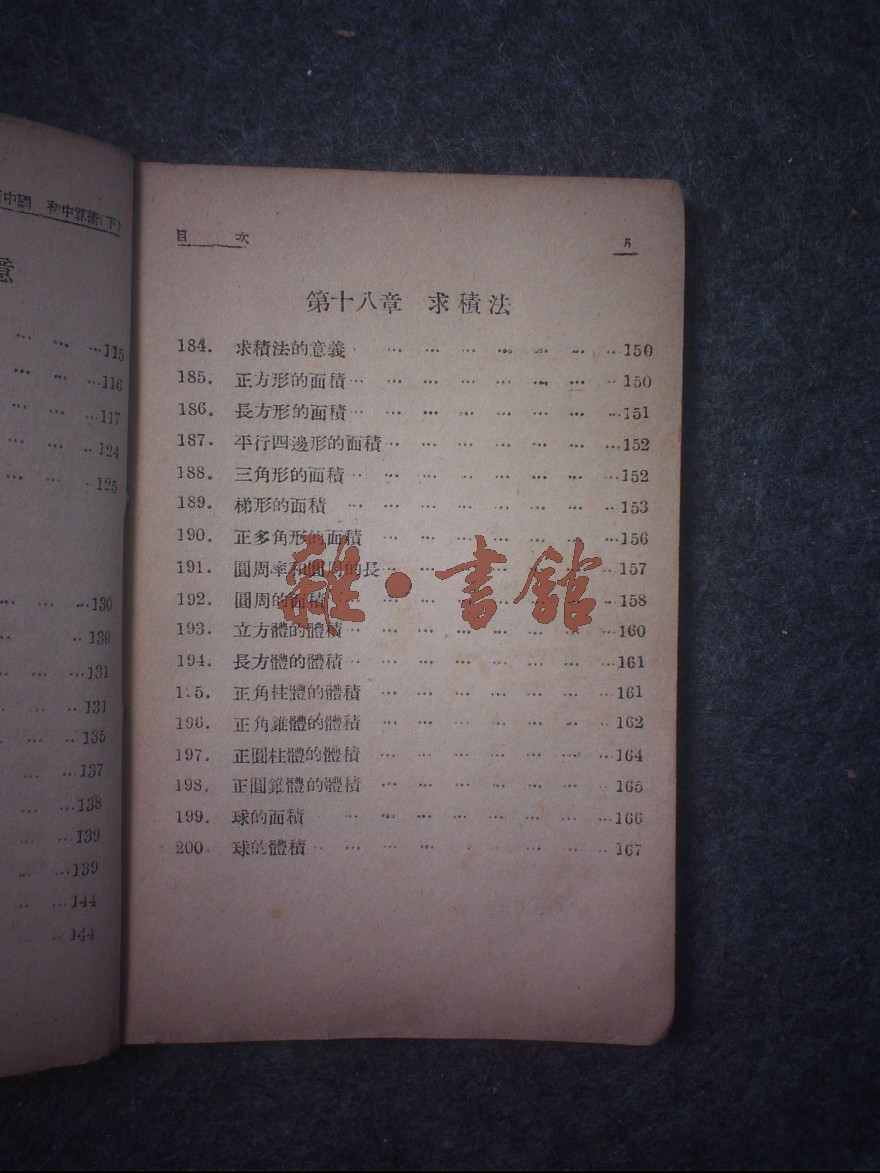 中國 初中算術(下)
意
… … …115
… … …116
… … …117
… … …124
… … ·125
… … …130
… … ··130
… … …131
… … ··131
… … …135
… …137
… …138
… …139
… …139
… …144
… ··144
目 次 5
第十八章 求積法
184. 求積法的意義 … … … … … … …150
185. 正方形的面積… … … … … … … …150
186. 長方形的面積… … … … … … … …151
187. 平行四邊形的面積… … … … … … …152
188. 三角形的面積… … … … … … … …152
189. 梯形的面積 … … … … … … … …153
190. 正多角形的面積 … … … … … … …156
191. 圓周率和圓周的長… … … … … … …157
192. 圓周的面積 … … … … … … … …158
193. 立方體的體積… … … … … … … …160
194. 長方體的體積… … … … … … … …161
1 5. 正角柱體的體積 … … … … … … …161
196. 正角錐體的體積 … … … … … … …162
197. 正圓柱體的體積 … … … … … … …164
198. 正圓錐體的體積 … … … … … … …165
199. 球的面積 … … … … … … … … …166
200. 球的體積… … … … … … … … …167
雜·書館